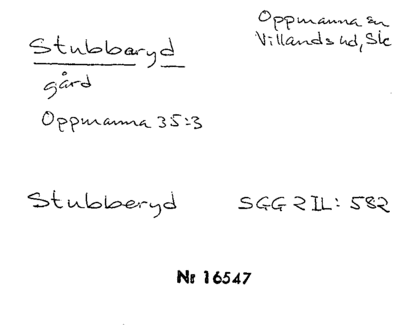 Stubbaryd
gård
Oppmanna 35:3
Oppmanna sn
Villands hd, Sk
Stubberyd
SGG 2 IL: 582
Nr 16547